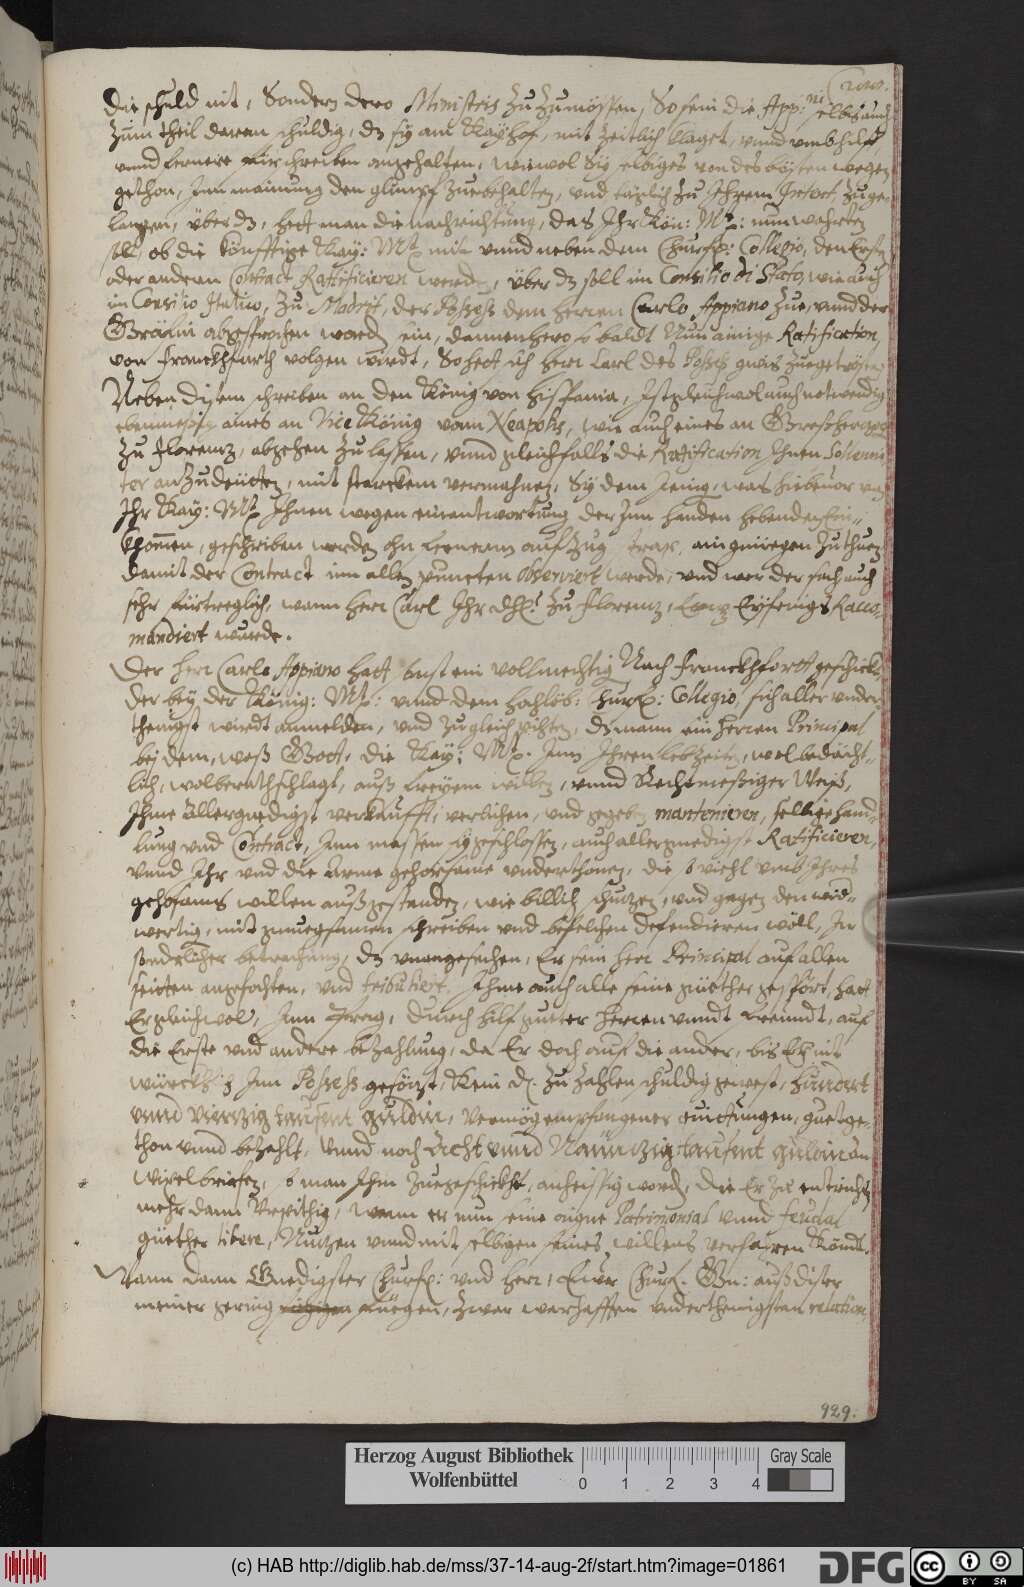 die schuld nit, Sondern dero Ministris zu zumössen, So sein die App:ni selbs auch
zum theil daran schuldig, dz sy am Kayhof, mit zeitlich klaget, vnnd vmb hilff
vnnd fernere fürschreiben angehalten, wiewol sy selbiges von des bösten wegen
gethon, Inn mainung den glimpf zuerhalten, vnd täglich zu Ihrem Intent zuge-
langen, über dz, hett man die nachrichtung, das Ihr Kön: Mt: nun wahrten
soll, ob die könfftige Kay: Mt mit vnnd neben dem Churf: Collegio, den Ersten
oder andern Contract Ratificieren werde, über dz soll im Consilio di Stato, wie auch
im Consilio Italico, zu Madrit, der Possess dem herren Carlo Appiano zue, vnnd der
Gräfin abgesprochen worden sein, dannenhero so baldt Nun ainige Ratification
von Franckhfurth volgen wirdt, So hett sich herr Carl des Possess gwis zuegetrösten
Neben disem schreiben an den König von Hispania, Ist gleichwol auch notwendig
ebenmessig aines an Vice König vonn Neapolis, wie auch eines an Grosherzog
zu Florentz, abgehen zu lassen, vnnd gleichfalls die Ratification Ihnen
anzudeütten, mit starckhem vermahnen, Sy dem Jenig, was hiebeuor von
Ihr Kay: Mt Ihnen wegen einantwortung der Inn handen habenden Ein-
khomen, geschriben worden ohn fernern aufzug, ain genüegen zu thuen
damit der Contract inn allen puncten observiert werde, vnd wer der sach auch
sehr fürtreglich, wann herr Carl Ihr Dht: zu Florentz, Eyferigs Racco-
mandiert wurde.
Der herr Carlo Appiano hatt sunst ein vollmechtig Nach Franckhfort geschickt,
der bey der König: Mt: vnnd dem hochlöb: Churf: Collegio, sich aller vnder-
thenigst wirdt anmelden, vnd zugleich pitten, dz mann sein herren Principal
bei dem, was Gott, die Kay: Mt. Inn Ihren lebzeiten, wolbedächt-
lich, wolberathschlagt, auß freyem willen, vnnd Rechtmeßiger Weiß,
Ihme Allergnedigst verkaufft, verlichen, vnd gegeben mantenieren, selbige hand-
lung vnd Contract, Inn massen sy geschlossen, auch allergnedigst Ratificieren,
vnnd Ihr vnd die Arme gehorsame vnderthonen, die so viehl vmb Ihres
gehosams willen außgestanden, wie billich schutzen, vnd gegen den wid-
wertig, mit gnuegsamen schreiben vnd befelchen defendieren wöll, In
sonderlicher betrachtung, dz vnangesehen, Er sein herr Principal auf allen
seitten angefochten, vnd tribuliert, Ihme auch alle seine güetter gespört, hatt
Er gleichwol, Inn Prag, durch hilf guetter herren vnndt freundt, auf
die Erste vnd andere bezahlung, da Er doch auf die ander, bis Er nit
würckhlich Inn Possess gesözt, kein d. zu zahlen schuldig gewest, hundert
vnnd viertzig tausent guldin, vermög empfangener quittungen, guetge-
thon vnnd bezahlt, Vnnd noch Acht vnnd Nauntzig tausent guldin an
Wexelbriefen, so man Ihm zuegeschickht, anheissig worden, die Er zu entrichten
mehr dann vrpithig, wann er nun seine aigne Patrimonial vnnd feudal
güetter libere, Nutzen vnnd mit selbigen seines willens verfahren Köndt.
Wann dann Gnedigster Churf: vnd herr, Ewer Churf. Gn: auß diser
meiner gering fuegen, zwar warhafften vnderthenigsten relation
929.
Herzog August Bibliothek
Wolfenbüttel
0 1 2 3 4
Gray Scale
(c) HAB http://diglib.hab.de/mss/37-14-aug-2f/start.htm?image=01861
DFG
cc BY SA